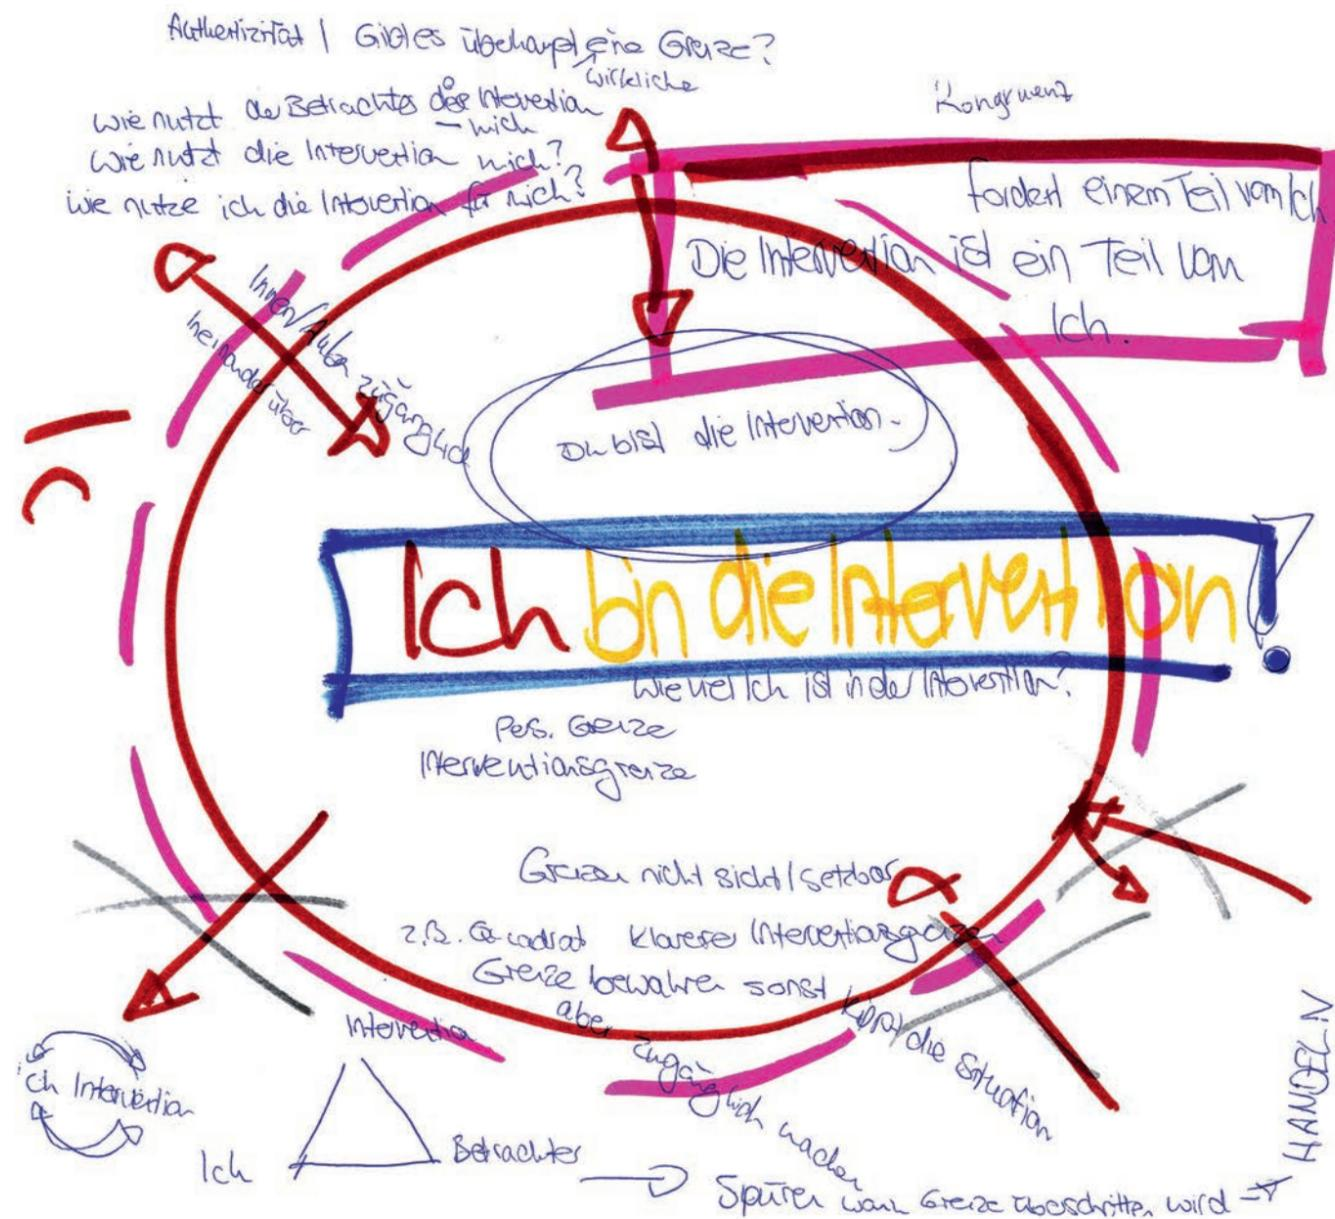 Authentizität | Gibt es überhaupt eine Grenze?
wirkliche
Kongruenz
wie nutzt der Betrachter die Intervention
– mich
wie nutzt die Intervention mich?
wie nutze ich die Intervention für mich?
fordert einem Teil vom Ich
Die Intervention ist ein Teil vom
Ich.
Innen/Außen zugänglich
ineinander über
Du bist die Intervention.
Ich bin die Intervention!
Wie viel Ich ist in der Intervention?
Pers. Grenze
Interventionsgrenze
Grenzen nicht sicht/setzbar
z.B. Quadrat klarere Interventionsgrenzen
Grenze bewahren sonst kippt die Situation
aber zugänglich machen
Intervention
Ich Intervention
Ich
Betrachter
Spüren wann Grenze überschritten wird → HANDELN